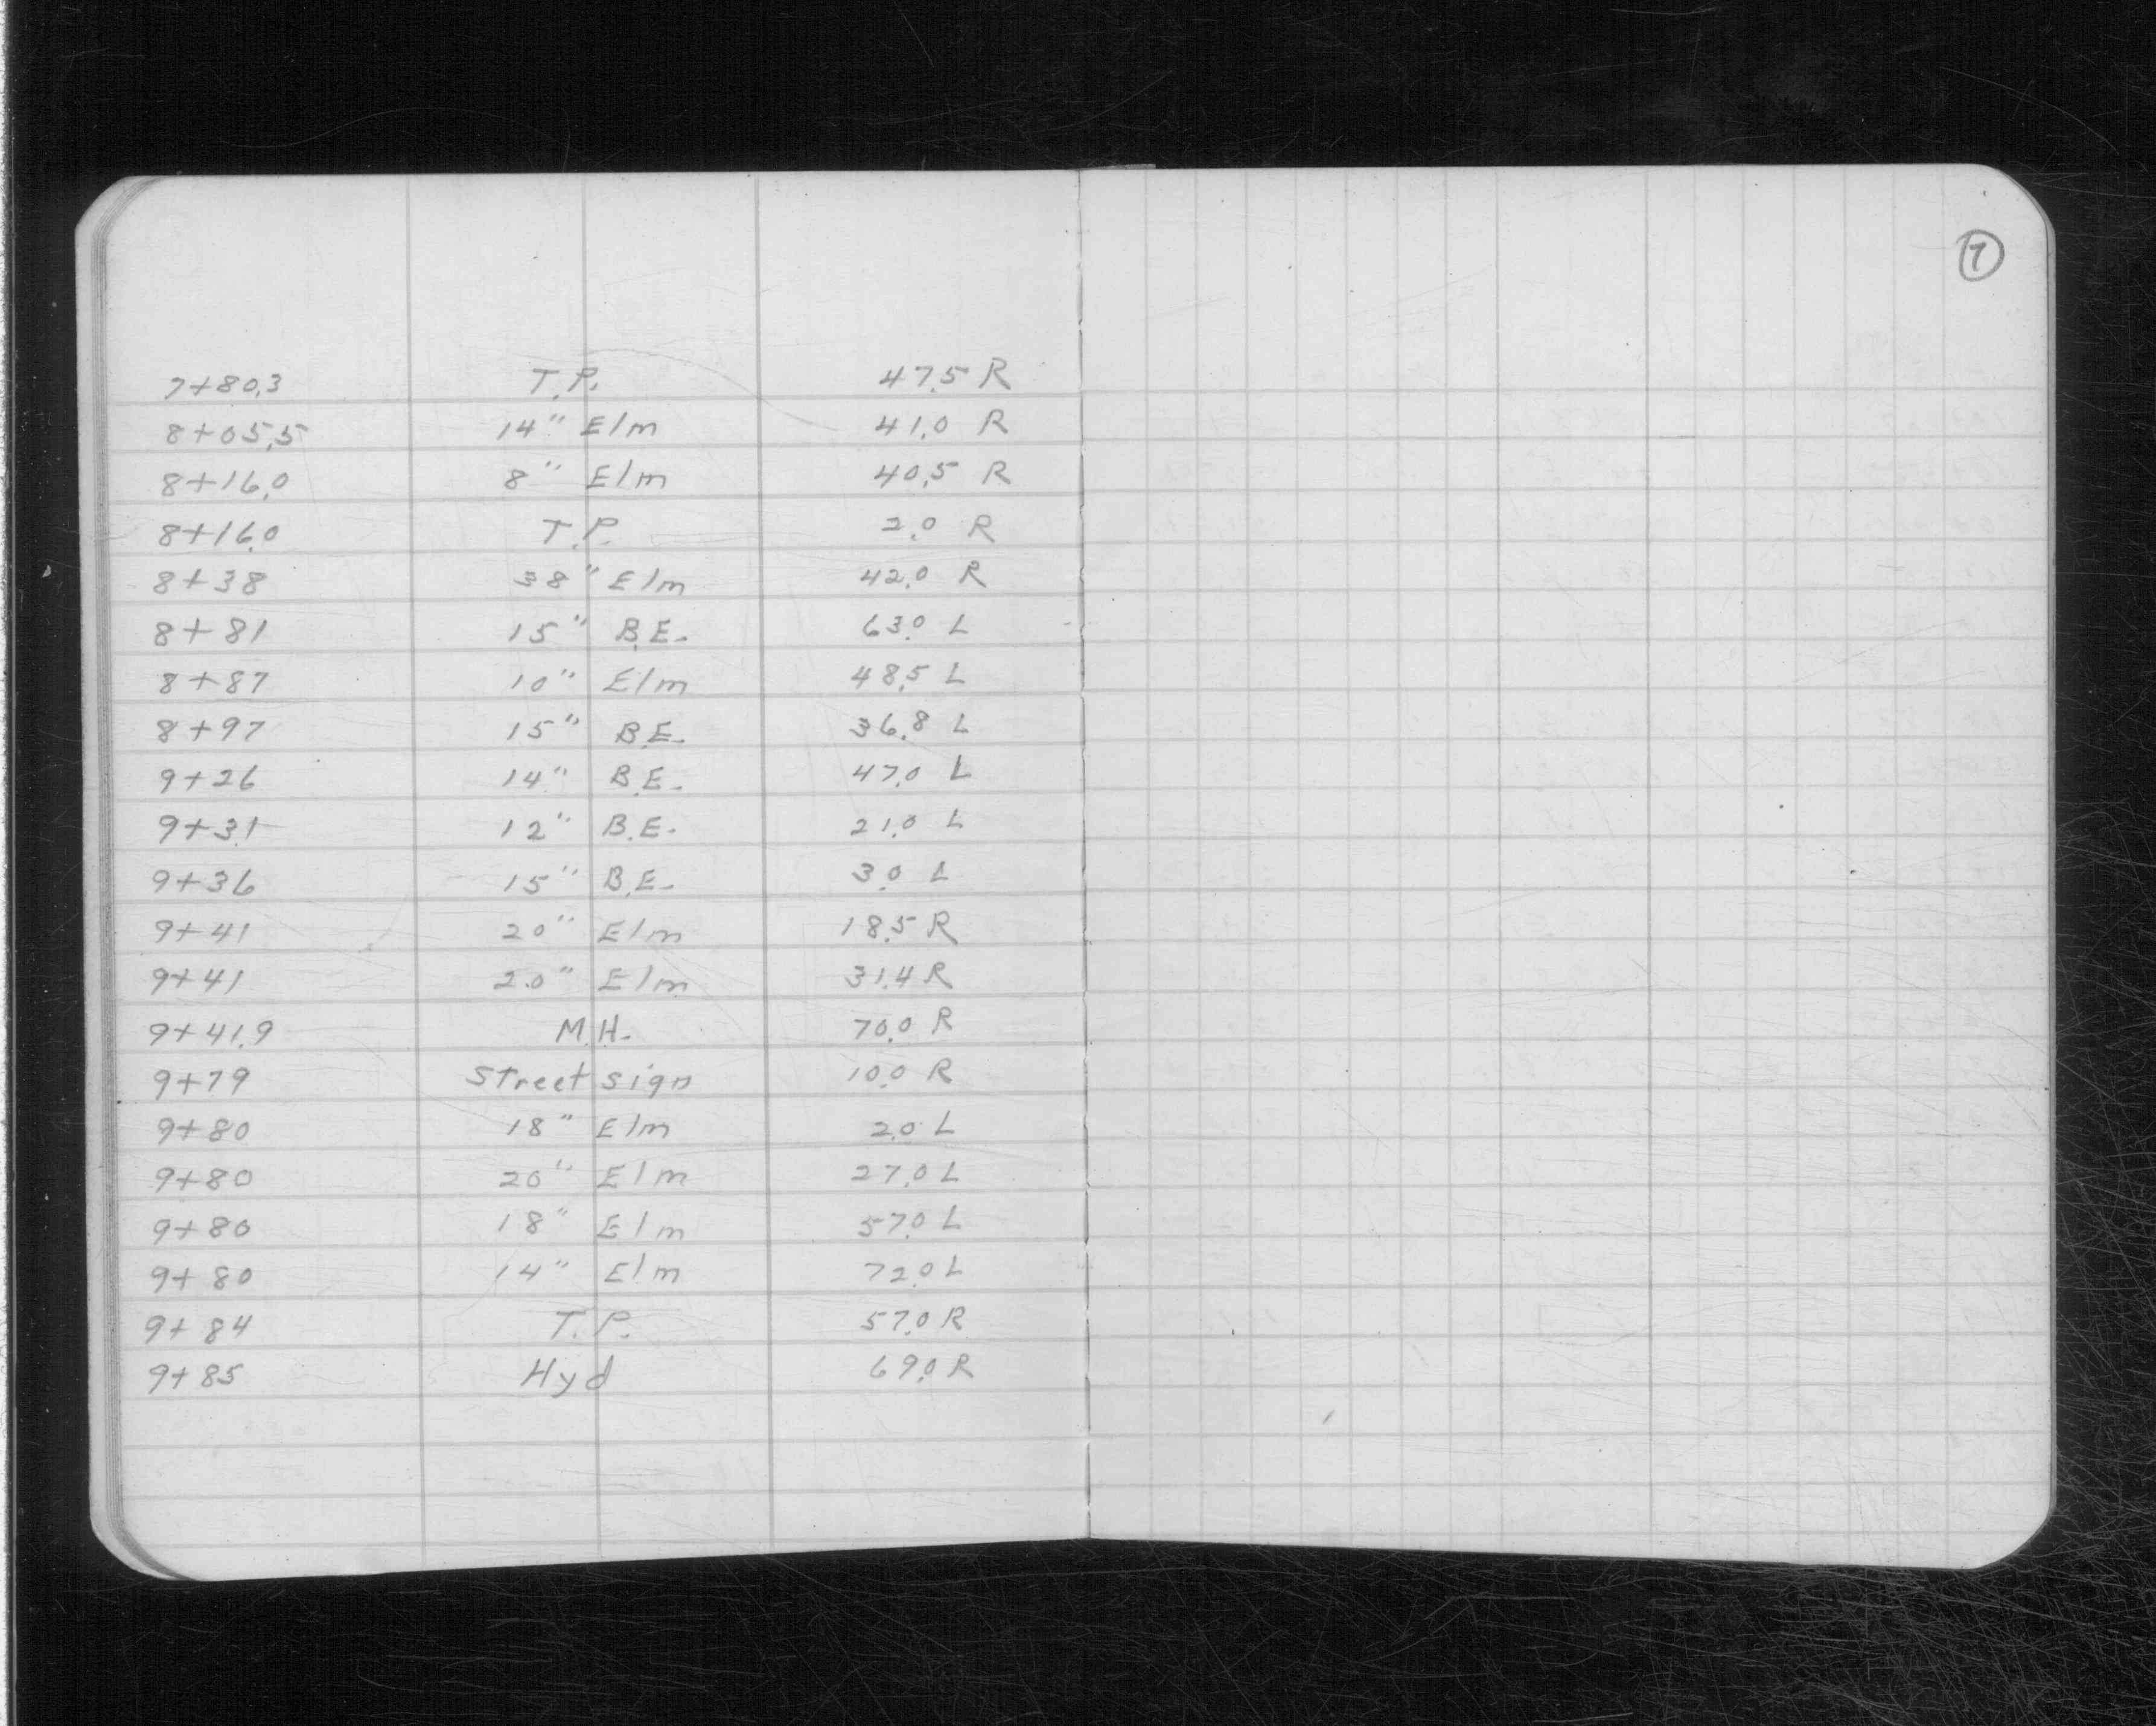 7
7+80.3 T.P. 47.5 R
8+05.5 14" Elm 41.0 R
8+16.0 8" Elm 40.5 R
8+16.0 T.P. 2.0 R
8+38 38" Elm 42.0 R
8+81 15" B.E. 63.0 L
8+87 10" Elm 48.5 L
8+97 15" B.E. 36.8 L
9+26 14" B.E. 47.0 L
9+31 12" B.E. 21.0 L
9+36 15" B.E. 3.0 L
9+41 20" Elm 18.5 R
9+41 20" Elm 31.4 R
9+41.9 M.H. 70.0 R
9+79 Street sign 10.0 R
9+80 18" Elm 2.0 L
9+80 20" Elm 27.0 L
9+80 18" Elm 57.0 L
9+80 14" Elm 72.0 L
9+84 T.P. 57.0 R
9+85 Hyd 69.0 R